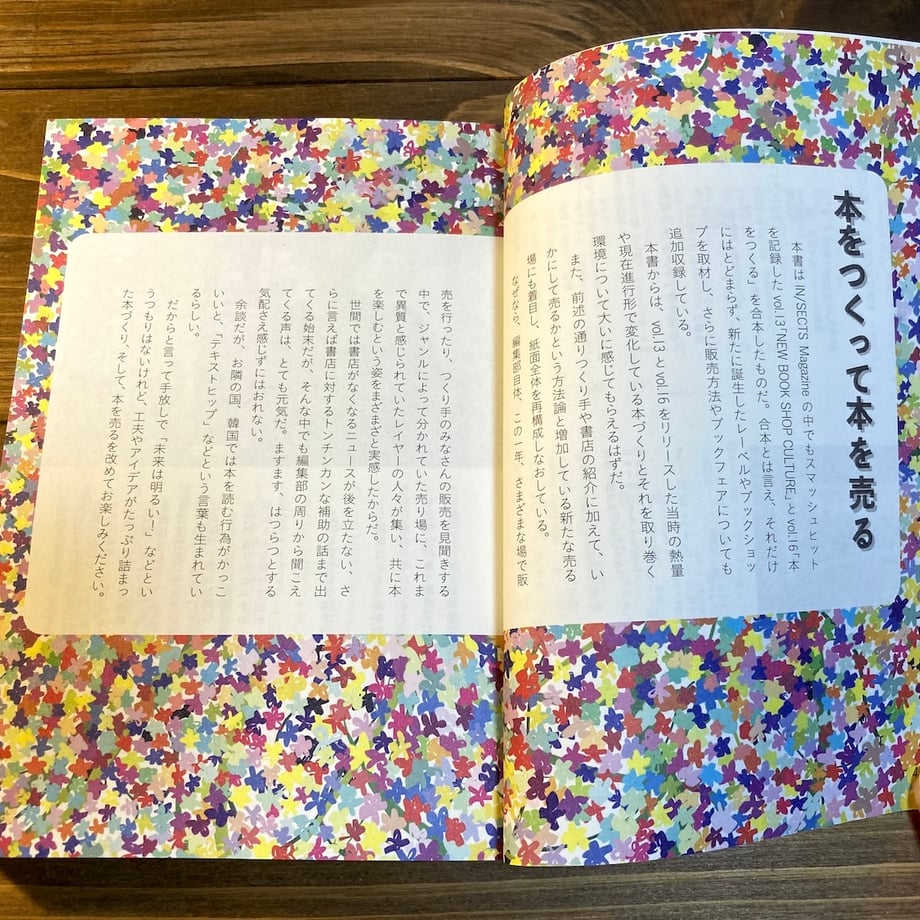 本をつくって本を売る
本書は IN/SECTS Magazine の中でもスマッシュヒット
を記録した vol.13「NEW BOOK SHOP CULTURE」と vol.16「本
をつくる」を合本したものだ。合本とは言え、それだけ
にはとどまらず、新たに誕生したレーベルやブックショッ
プを取材し、さらに販売方法やブックフェアについても
追加収録している。
本書からは、vol.13 と vol.16 をリリースした当時の熱量
や現在進行形で変化している本づくりとそれを取り巻く
環境について大いに感じてもらえるはずだ。
また、前述の通りつくり手や書店の紹介に加えて、い
かにして売るかという方法論と増加している新たな売る
場にも着目し、紙面全体を再構成しなおしている。
なぜなら、編集部自体、この一年、さまざまな場で販
売を行ったり、つくり手のみなさんの販売を見聞きする
中で、ジャンルによって分かれていた売り場に、これま
で異質と感じられていたレイヤーの人々が集い、共に本
を楽しむという姿をまざまざと実感したからだ。
世間では書店がなくなるニュースが後を立たない、さ
らに言えば書店に対するトンチンカンな補助の話まで出
てくる始末だが、そんな中でも編集部の周りから聞こえ
てくる声は、とても元気だ。ますます、はつらつとする
気配さえ感じずにはおれない。
余談だが、お隣の国、韓国では本を読む行為がかっこ
いいと、「テキストヒップ」などという言葉も生まれてい
るらしい。
だからと言って手放しで「未来は明るい！」などとい
うつもりはないけれど、工夫やアイデアがたっぷり詰まっ
た本づくり、そして、本を売るを改めてお楽しみください。